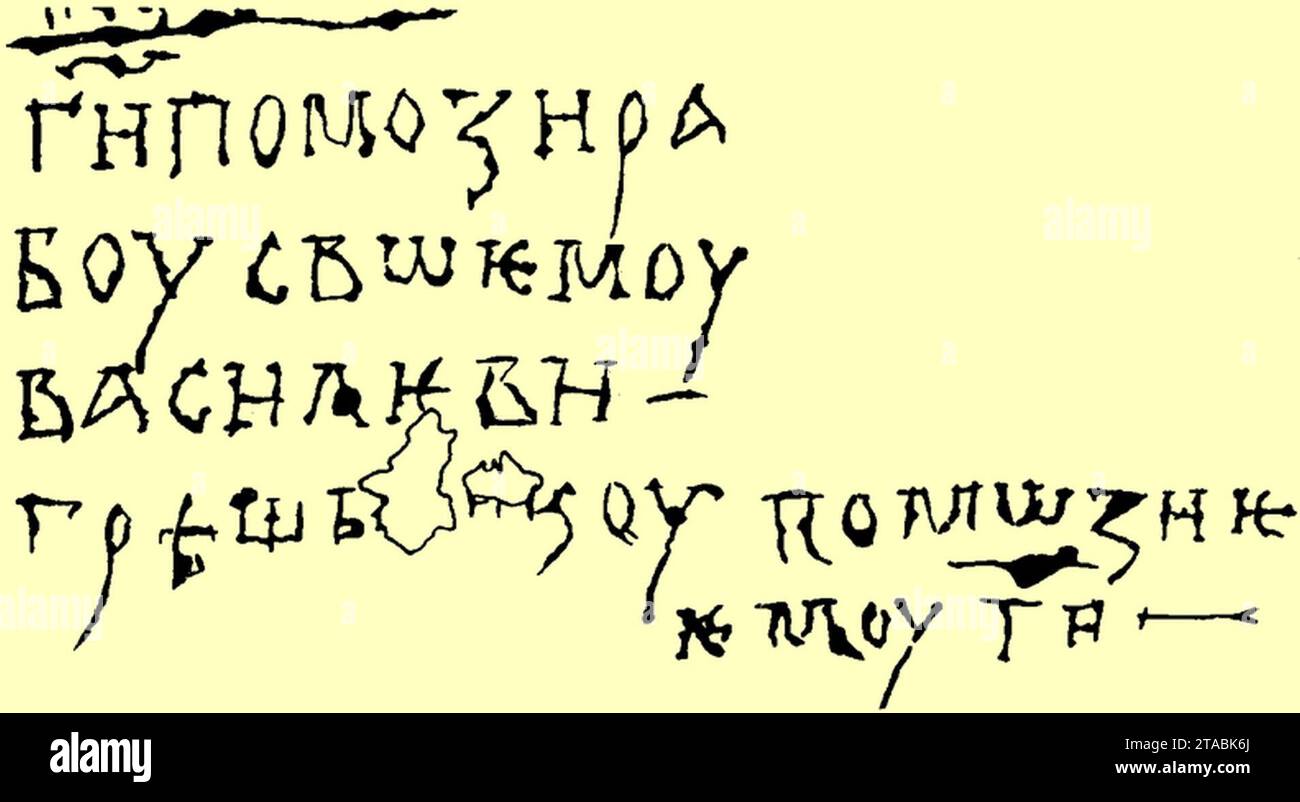 ГНПОМОЗНРА
БОУ СВѠѤМОУ
ВАСНЛѤВН
ГРѢШЬ НЗОУ ПОМѠЗНѤ
ѤМОУ ГН
alamy
Image ID: 2TABK6J
www.alamy.com